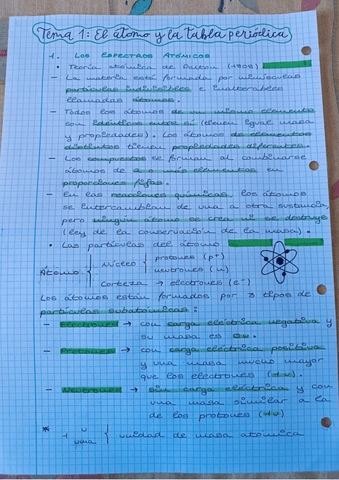 Tema 1: El átomo y la tabla periódica
1. Los espectros atómicos
• Teoría atómica de Dalton (1808)
- La materia está formada por minúsculas
partículas indivisibles e inalterables
llamadas átomos.
- Todos los átomos de un mismo elemento
son idénticos entre sí (tienen igual masa
y propiedades). Los átomos de elementos
distintos tienen propiedades diferentes.
- Los compuestos se forman al combinarse
átomos de 2 o más elementos en
proporciones fijas.
- En las reacciones químicas, los átomos
se intercambian de una a otra sustancia,
pero ningún átomo se crea ni se destruye
(ley de la conservación de la masa).
• Las partículas del átomo
Átomo { Núcleo { protones (p+)
neutrones (n)
Corteza → electrones (e-)
Los átomos están formados por 3 tipos de
partículas subatómicas:
- Electrones → con carga eléctrica negativa y
su masa es 0u.
- Protones → con carga eléctrica positiva
y una masa mucho mayor
que los electrones (1u).
- Neutrones → sin carga eléctrica y con
una masa similar a la
de los protones (1u)
* 1 u
uma } unidad de masa atómica